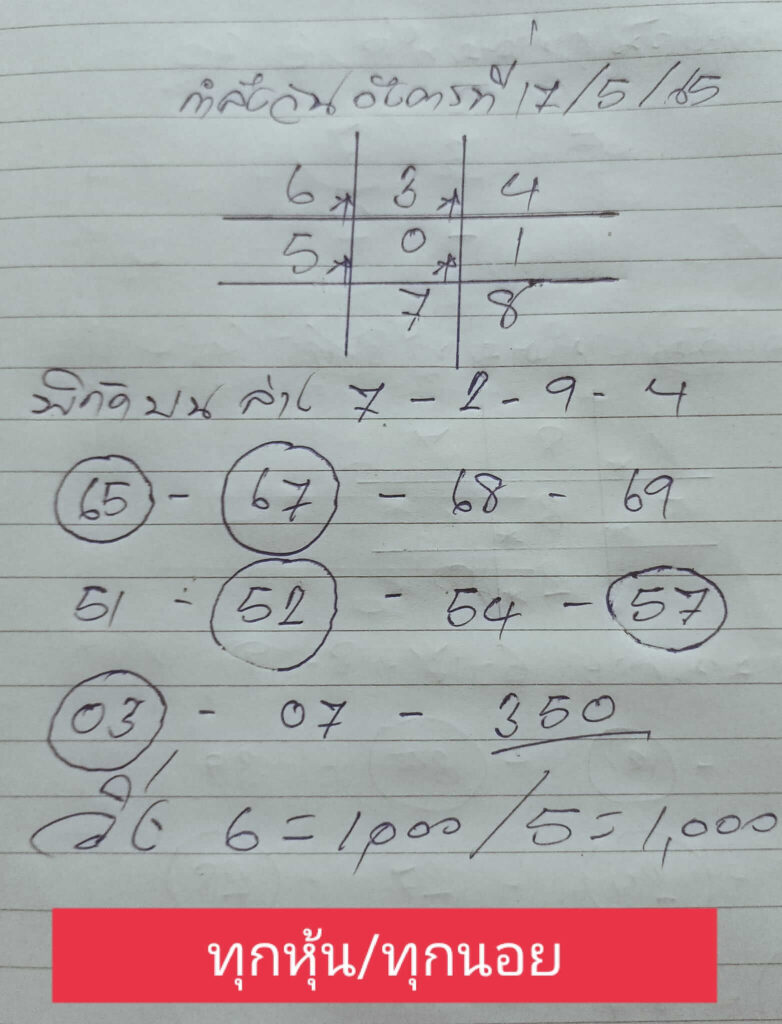 กำลังวัน อังคารที่ 17/5/65
6 3 4
5 0 1
7 8
พิกัด บน ล่าง 7 - 2 - 9 - 4
65 - 67 - 68 - 69
51 - 52 - 54 - 57
03 - 07 - 350
วิ่ง 6 = 1,000 / 5 = 1,000
ทุกหุ้น/ทุกนอย